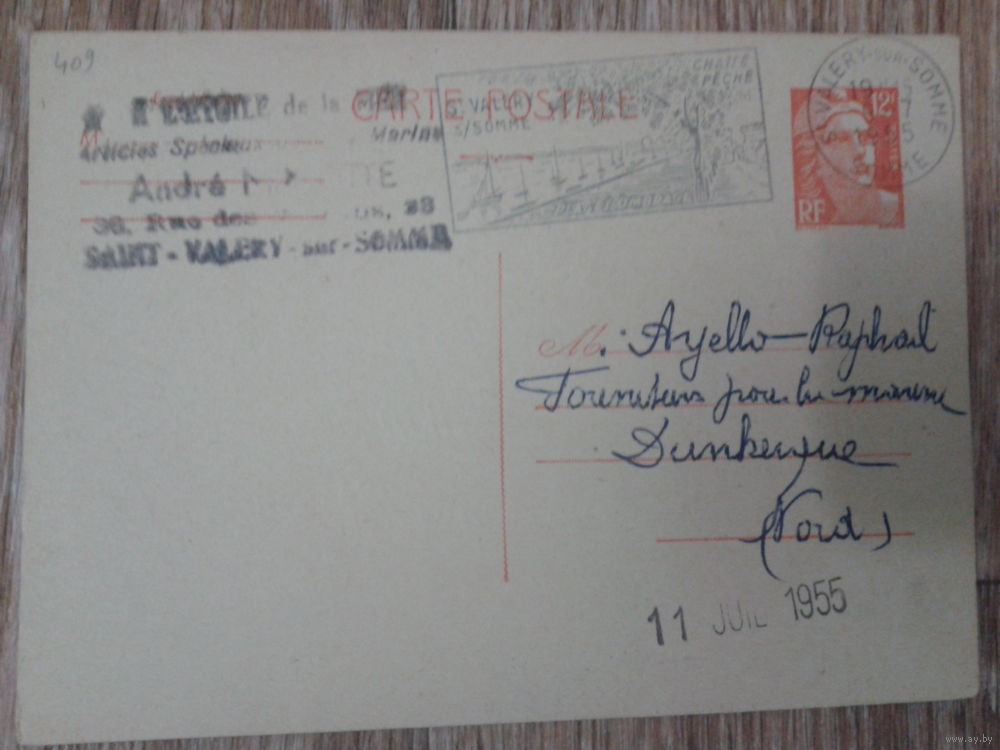 409
CARTE POSTALE
★ A L'ETOILE de la MER
Articles Spéciaux Marine
André
38, Rue des 38
SAINT-VALERY-sur-SOMME
St VALERY
S/SOMME
CHASSE
PÊCHE
VALERY-SUR-SOMME
12F
RF
M. Ayello-Raphael
Fournitures pour la marine
Dunkerque
(Nord)
11 JUIL 1955
www.ay.by